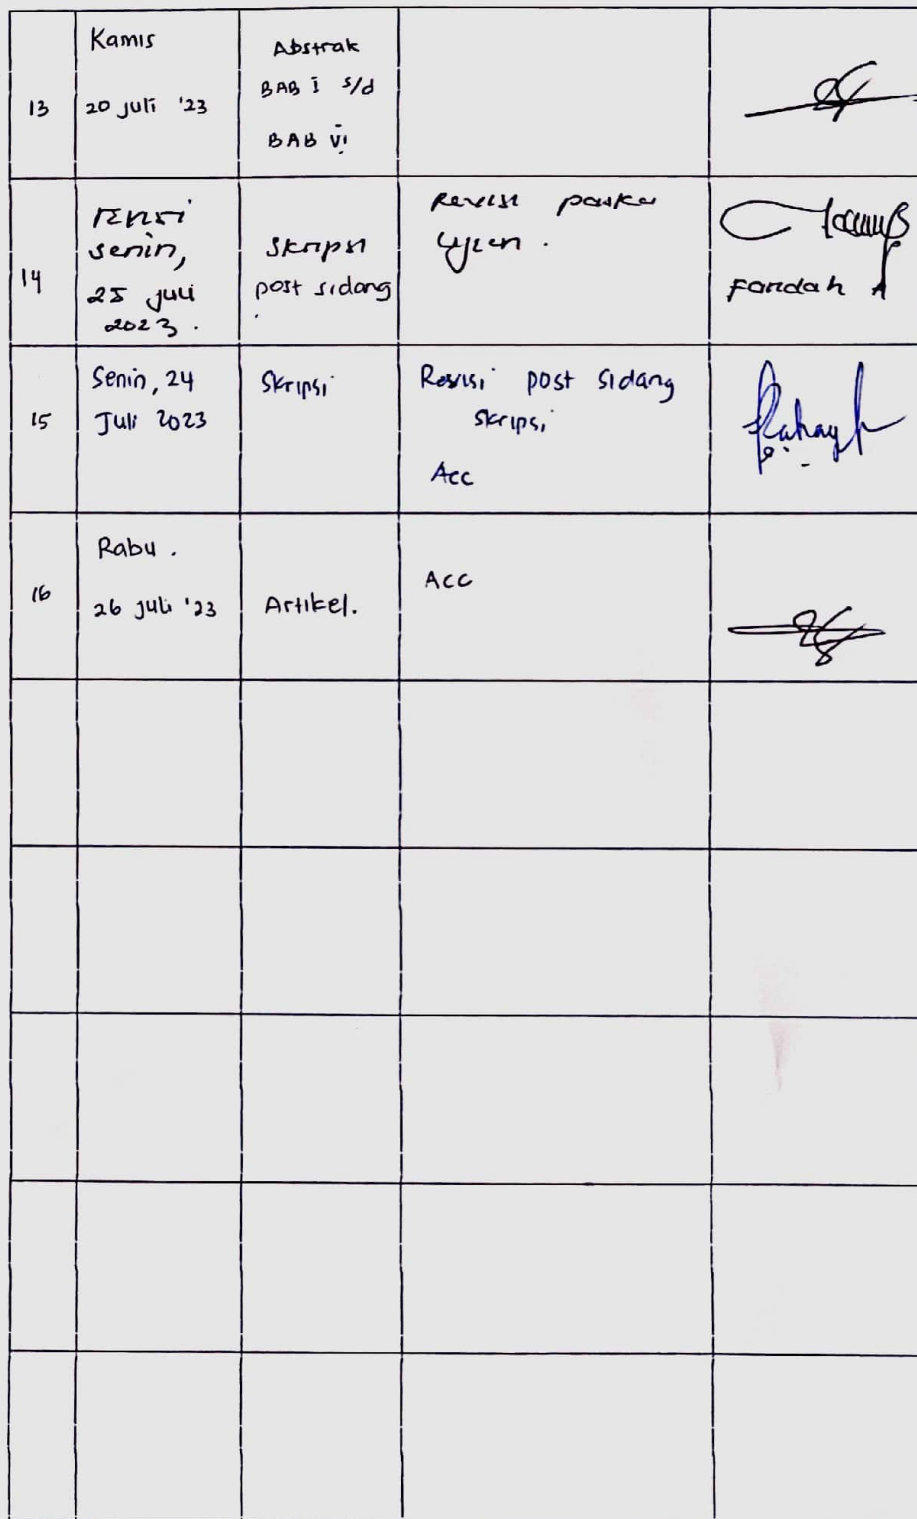 13
Kamis
20 juli '23
Abstrak
BAB I s/d
BAB VI
14
senin,
25 juli
2023.
Skripsi
post sidang
Revisi paska
Ujian.
Faridah A
15
Senin, 24
Juli 2023
Skripsi
Revisi post Sidang
skripsi
Acc
16
Rabu.
26 juli '23
Artikel.
ACC